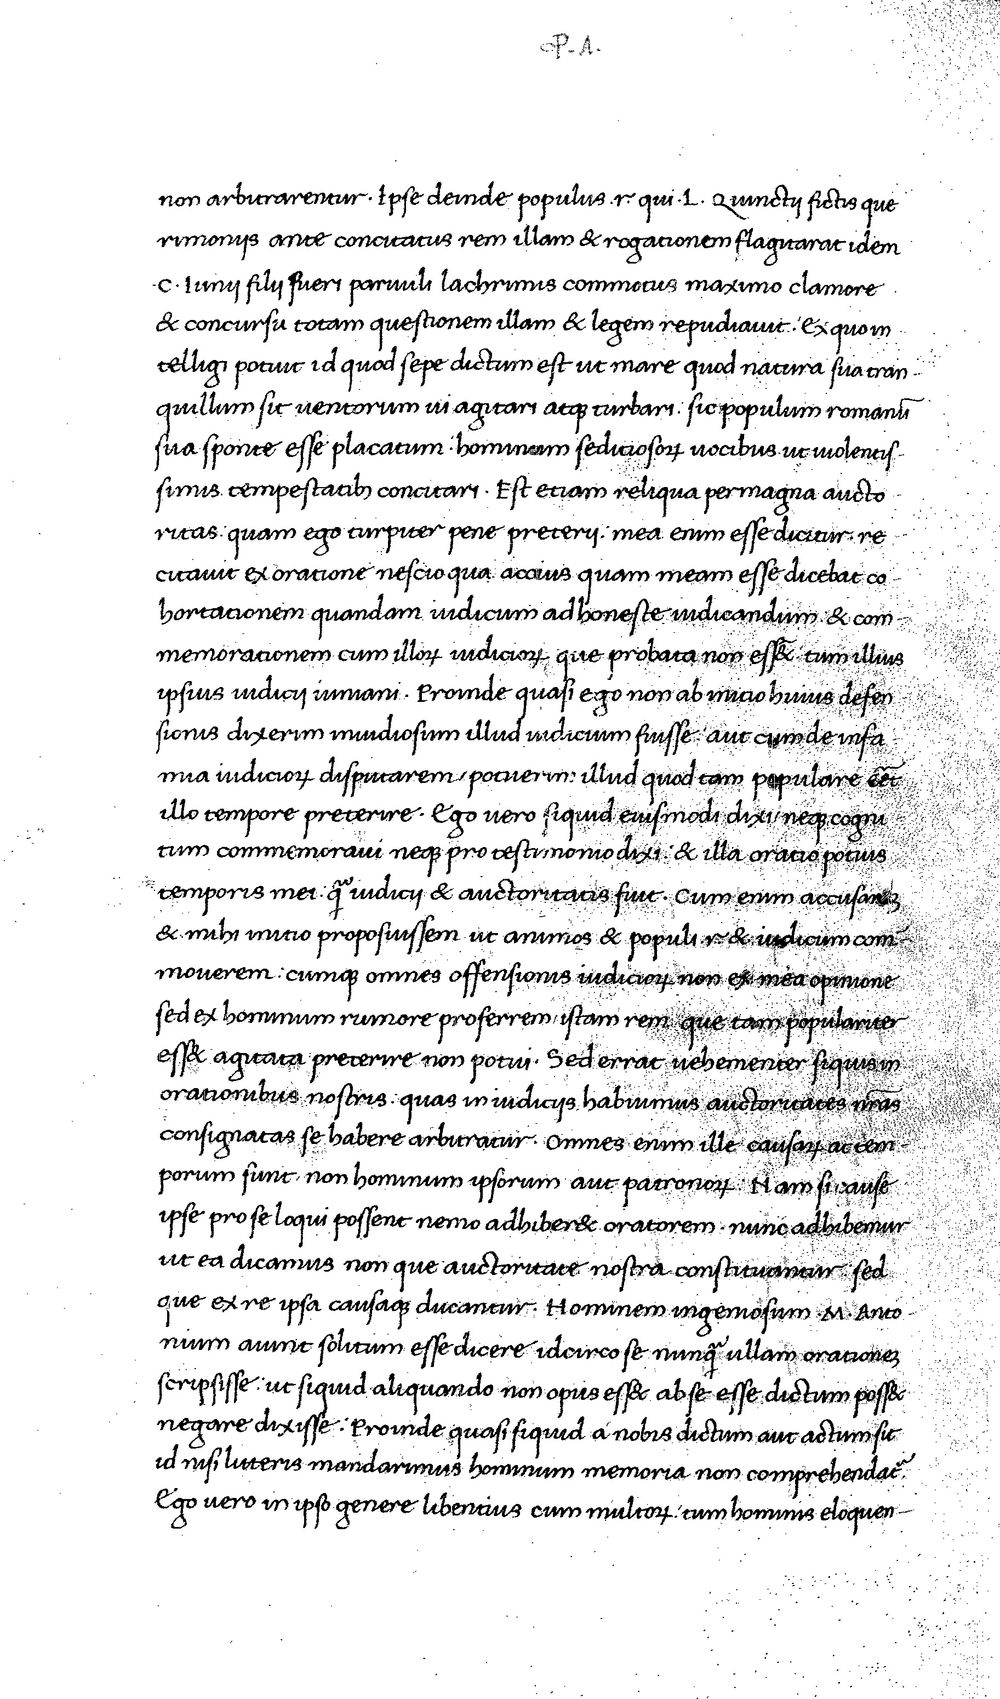 P. A.
non arbitrarentur. Ipse deinde populus .r. qui .L. Quinctij fictis que
rimonijs ante concitatus rem illam & rogationem flagitarat idem
.C. Iunij filij pueri paruuli lachrimis commotus maximo clamore
& concursu totam questionem illam & legem repudiauit. Ex quo in
telligi potuit id quod sepe dictum est ut mare quod natura sua tran-
quillum sit uentorum ui agitari atqꝫ turbari. sic populum romanū
sua sponte esse placatum. hominum seditiosoꝝ uocibus ut uiolentis-
simis tempestatibꝫ concitari. Est etiam reliqua permagna aucto
ritas. quam ego turpiter pene preterij. mea enim esse dicitur. re
citauit ex oratione nescio qua accius quam meam esse dicebat co
hortationem quandam iudicum ad honeste iudicandum. & com-
memorationem cum illoꝝ iudicioꝝ que probata non ess& tum illius
ipsius iudicij iuniani. Proinde quasi ego non ab initio huius defen
sionis dixerim inuidiosum illud iudicium fuisse. aut cum de infa
mia iudicioꝝ disputarem, potuerim. illud quod tam populare eēt
illo tempore preterire. Ego uero siquid eiusmodi dixi, neqꝫ cogni
tum commemoraui neqꝫ pro testimonio dixi. & illa oratio potius
temporis mei. q̃ iudicij & auctoritatis fuit. Cum enim accusareꝫ
& mihi initio proposuissem ut animos & populi .r. & iudicum com-
mouerem. cumqꝫ omnes offensionis iudicioꝝ non ex mea opinione
sed ex hominum rumore proferrem, istam rem que tam populariter
ess& agitata preterire non potui. Sed errat uehementer siquis in
orationibus nostris. quas in iudicijs habuimus auctoritates nr̃as
consignatas se habere arbitratur. Omnes enim ille causaꝝ ac tem-
porum sunt, non hominum ipsorum aut patronoꝝ. Nam si cause
ipse pro se loqui possent nemo adhiber& oratorem. nunc adhibemur
ut ea dicamus non que auctoritate nostra constituantur. sed
que ex re ipsa causaqꝫ ducantur. Hominem ingeniosum .M. Anto
nium aiunt solitum esse dicere idcirco se nunq̃ ullam orationeꝫ
scripsisse. ut siquid aliquando non opus ess& ab se esse dictum poss&
negare dixisse. Proinde quasi siquid a nobis dictum aut actum sit
id nisi litteris mandarimus hominum memoria non comprehendat̃.
Ego uero in ipso genere libentius cum multoꝝ. tum hominis eloquen-